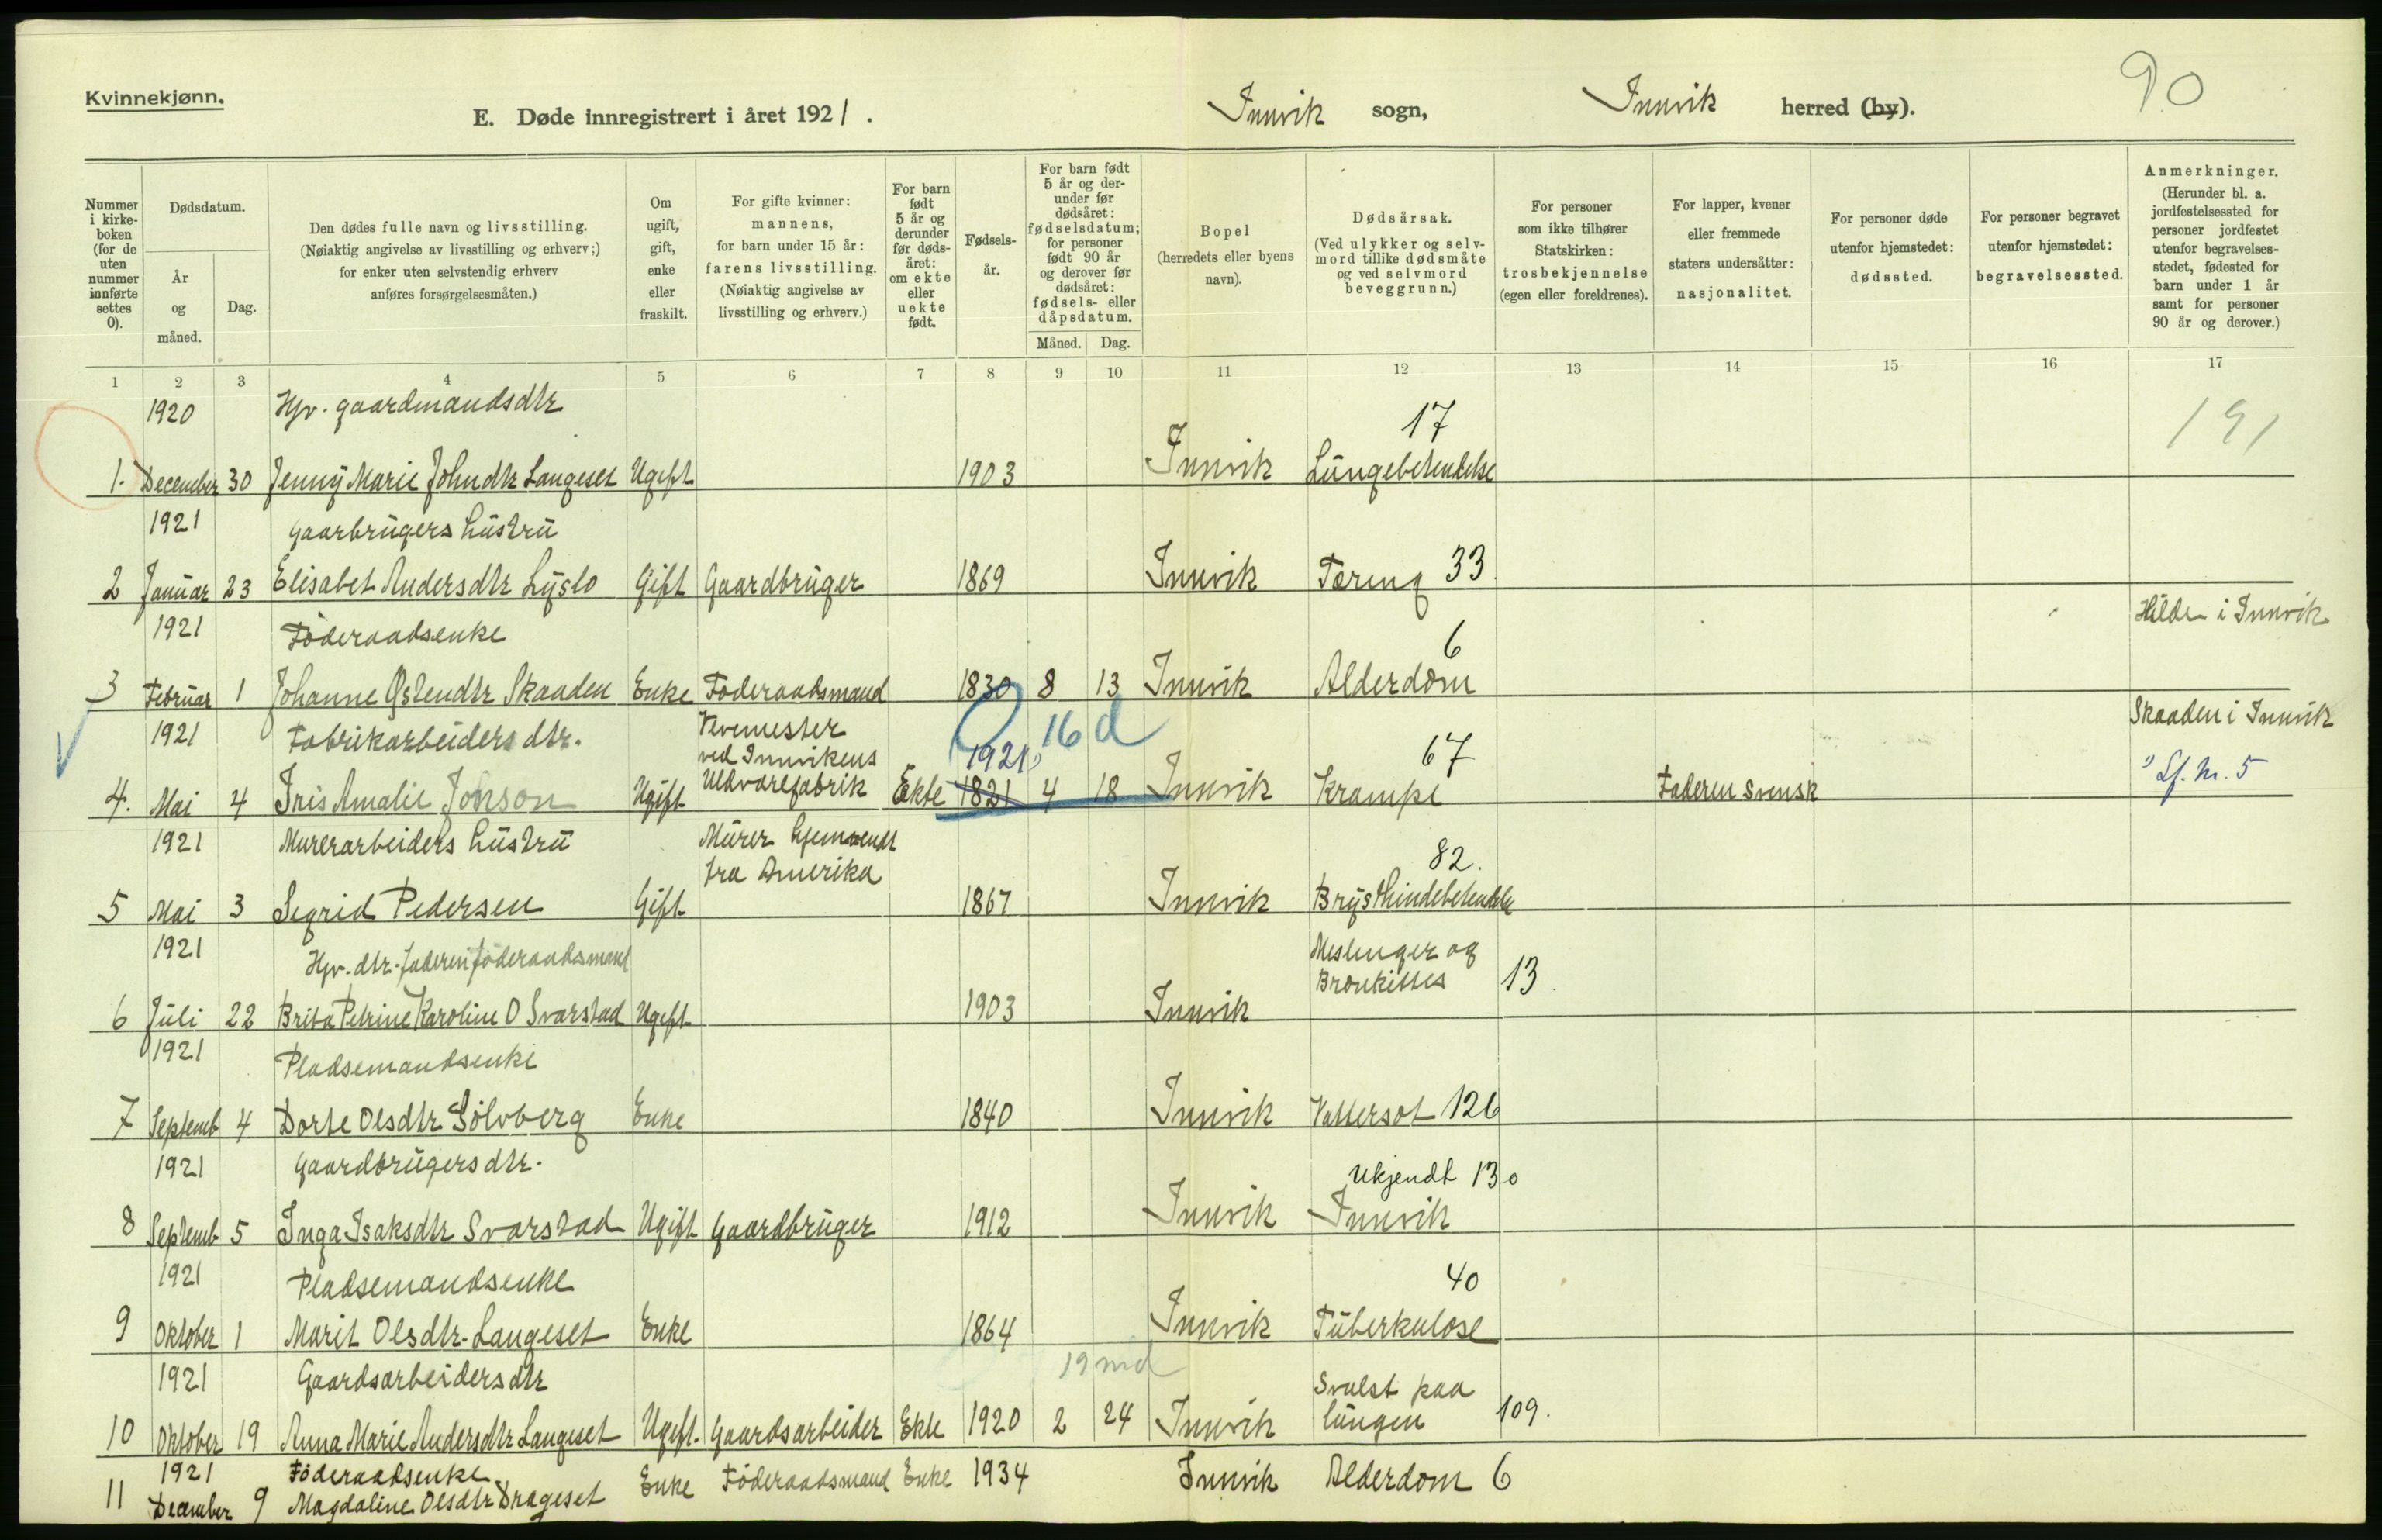 Kvinnekjønn.
E. Døde innregistrert i året 1921.
Innvik sogn, Innvik herred (by).
90
Nummer i kirkeboken (for de uten nummer innførte settes 0).
Dødsdatum.
År og måned.
Dag.
Den dødes fulle navn og livsstilling.
(Nøiaktig angivelse av livsstilling og erhverv;)
for enker uten selvstendig erhverv
anføres forsørgelsesmåten.)
Om ugift, gift, enke eller fraskilt.
For gifte kvinner:
mannens,
for barn under 15 år:
farens livsstilling.
(Nøiaktig angivelse av
livsstilling og erhverv.)
For barn født 5 år og derunder før dødsåret: om ekte eller uekte født.
Fødselsår.
For barn født 5 år og derunder før dødsåret: fødselsdatum; for personer født 90 år og derover før dødsåret: fødsels- eller dåpsdatum.
Måned. Dag.
Bopel
(herredets eller byens
navn).
Dødsårsak.
(Ved ulykker og selvmord tillike dødsmåte og ved selvmord beveggrunn.)
For personer
som ikke tilhører
Statskirken:
trosbekjennelse
(egen eller foreldrenes).
For lapper, kvener
eller fremmede
staters undersåtter:
nasjonalitet.
For personer døde
utenfor hjemstedet:
dødssted.
For personer begravet
utenfor hjemstedet:
begravelsessted.
Anmerkninger.
(Herunder bl. a.
jordfestelsessted for
personer jordfestet
utenfor begravelses-
stedet, fødested for
barn under 1 år
samt for personer
90 år og derover.)
1 2 3 4 5 6 7 8 9 10 11 12 13 14 15 16 17
1920 Hjv. gaardmandsdtr 17 191
1. December 30 Jenny Marie Johndtr Langeset Ugift 1903 Innvik Lungebetendelse
1921 Gaarbrugers hustru
2 Januar 23 Elisabet Andersdtr Lyslo Gift Gaardbruger 1869 Innvik Tæring 33
1921 Föderaadsenke 6 Hilde i Innvik
3 Februar 1 Johanne Østendtr Skaaden Enke Föderaadsmand 1830 8 13 Innvik Alderdom
1921 Fabrikarbeiders dtr. Vevmester ved Innvikens 1921 16 d 67 Skaaden i Innvik
4. Mai 4 Iris Amalie Jonson Ugift Uldvarefabrik Ekte 1821 4 18 Innvik Krampe Faderen svensk Lf. nr. 5
1921 Murerarbeiders hustru Murer hjemvendt fra Amerika 82.
5 Mai 3 Sigrid Pedersen Gift 1867 Innvik Brysthindebetendelse
1921 Hjv. dtr. faderen föderaadsmand Meslinger og Bronkittes 13
6 Juli 22 Brita Petrine Karoline O Svarstad Ugift 1903 Innvik
1921 Pladsemandsenke
7 Septemb 4 Dorte Olsdtr Sölvberg Enke 1840 Innvik Vattersot 126
1921 Gaardbrugers dtr. Ukjendt 130
8 Septemb 5 Inga Isaksdtr Svarstad Ugift Gaardbruger 1912 Innvik Innvik
1921 Pladsemandsenke 40
9 Oktober 1 Marit Olsdtr. Langeset Enke 1864 Innvik Tuberkulose
1921 Gaardsarbeiders dtr 19 md Svulst paa
10 Oktober 19 Anna Marie Andersdtr Langeset Ugift. Gaardsarbeider Ekte 1920 2 24 Innvik lungen 109.
1921 Föderaadsenke Enke Föderaadsmand Enke 1934 Innvik Alderdom 6
11 December 9 Magdaline Olsdtr Drageset